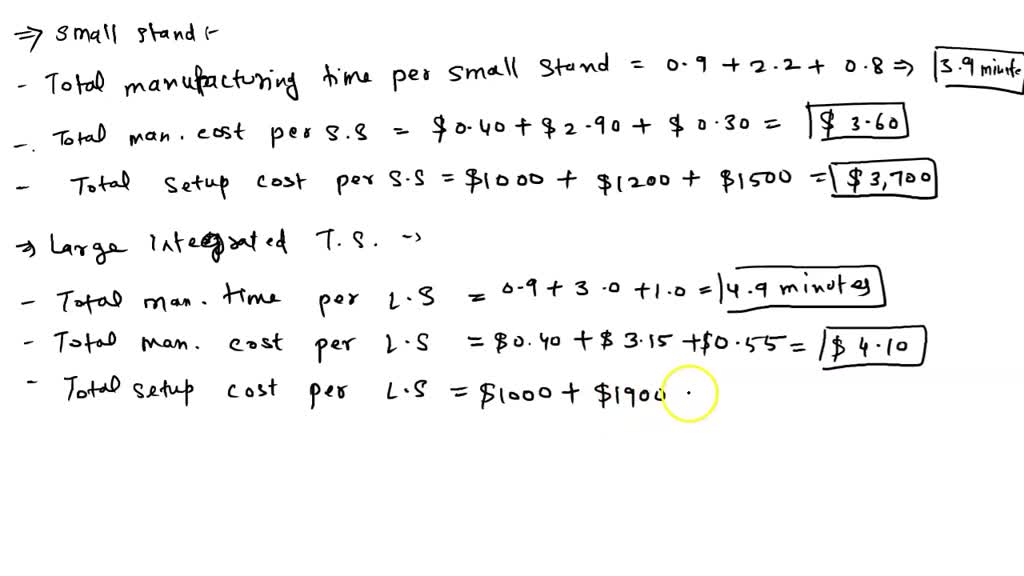 ⇒ Small stand :-
- Total manufacturing time per small stand = 0.9 + 2.2 + 0.8 ⇒ 3.9 minute
-. Total man. cost per S.S = $0.40 + $2.90 + $0.30 = $3.60
- Total setup cost per S.S = $1000 + $1200 + $1500 = $3,700
⇒ Large Integrated T.S. →
- Total man. time per L.S = 0.9 + 3.0 + 1.0 = 4.9 minutes
- Total man. cost per L.S = $0.40 + $3.15 + $0.55 = $4.10
- Total setup cost per L.S = $1000 + $1900